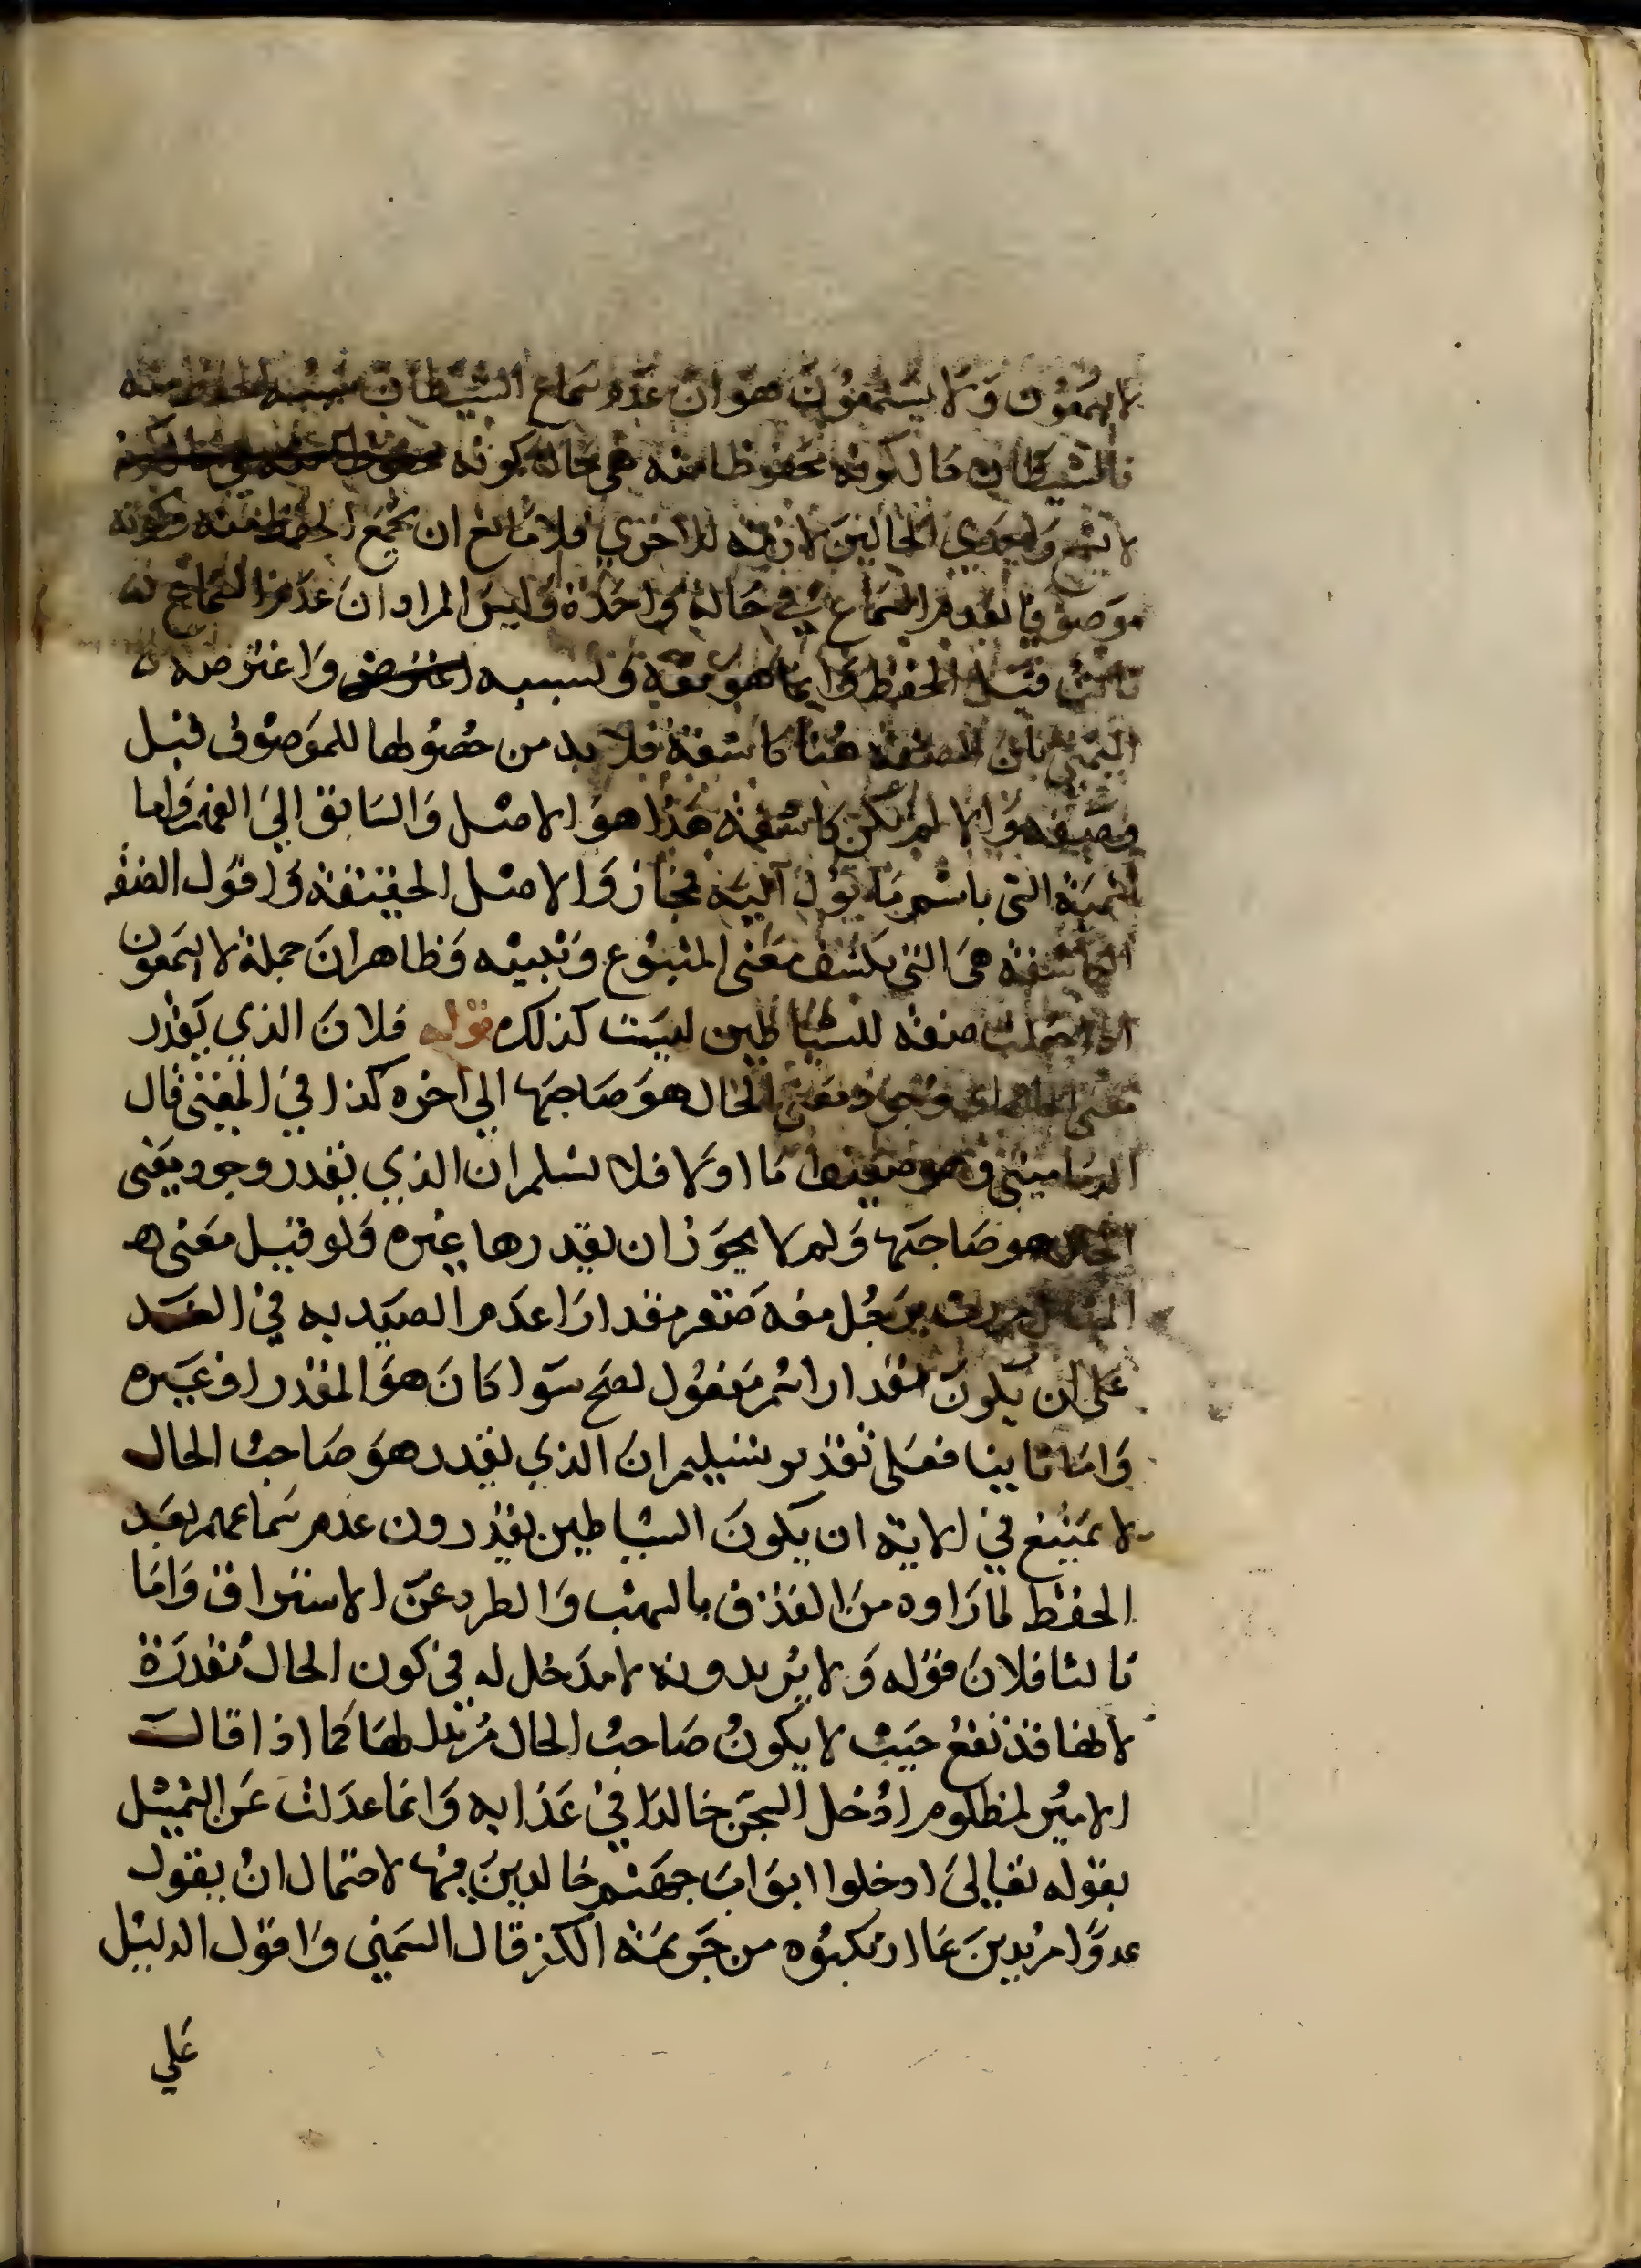 لا يسمعون ولا يستمعون هو ان عدم سماع الشيطان بسبب الحفظ منه
فالشيطان حال كونه محفوظا منه هي حالة كونه
لا يسمع واحدي الحالين لازمة للاخري فلا مانع ان يجمع الحفظ منه وكونه
موصوفا بعدم السماع في حالة واحدة وليس المراد ان عدم السماع
ثابت قبل الحفظ وانما هو معه وبسببه واعترضه
الشمني بان الصفة هنا كاشفة فلا بد من حصولها للموصوف قبل
وصفه والا لم تكن كاشفة هذا هو الاصل والسابق الي الفهم واما
تسمية التي باسم ما يول اليه فمجاز والاصل الحقيقة واقول الصفة
الكاشفة هي التي تكشف معني المتبوع وتبينه وظاهر ان جملة لا يسمعون
اذا جعلت صفة للشياطين ليست كذلك قوله فلان الذي يقدر
معني الحال هو صاحبها الي اخره كذا في المغني قال
الدماميني وهو ضعيف اما اولا فلا نسلم ان الذي يقدر وجود معني
الحال هو صاحبها ولم لا يجوز ان يقدرها غيره ولو قيل معني هـ
المثال مررت برجل معه صقر مقدارا عدم الصيد به في الغـد
علي ان يكون مقدارا اسم مفعول لصح سوا كان هو المقدر او غيره
واما ثانيا فعلي تقدير تسليم ان الذي يقدر هو صاحب الحال
لا يمتنع في الاية ان يكون الشياطين يقدرون عدم سماعهم بعد
الحفظ لما راوه من القذف بالشهب والطرد عن الاستراق واما
ثالثا فلان قوله ولا يريدونه لا مدخل له في كون الحال مقدرة
لانها قد تقع حيث لا يكون صاحب الحال مريدا لها كما اذا قال
الامير لمظلوم ادخل السجن خالدا في عذابه وانما عدلت عن التمثيل
بقوله تعالي ادخلوا ابواب جهنم خالدين فيها لاحتمال ان يقول
عدوا مريدين عما ارتكبوه من جريمة الكفر قال الشمني واقول الدليل
علي